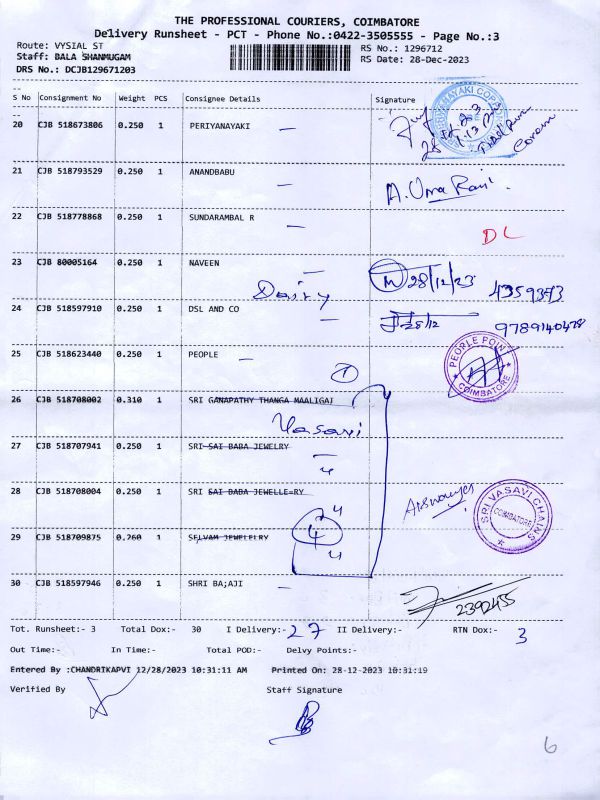 THE PROFESSIONAL COURIERS, COIMBATORE
Delivery Runsheet - PCT - Phone No.:0422-3505555 - Page No.:3
Route: VYSIAL ST RS No.: 1296712
Staff: BALA SHANMUGAM RS Date: 28-Dec-2023
DRS No.: DCJB129671203
S No Consignment No Weight PCS Consignee Details Signature
20 CJB 518673806 0.250 1 PERIYANAYAKI
21 CJB 518793529 0.250 1 ANANDBABU A. Uma Rani.
22 CJB 518778868 0.250 1 SUNDARAMBAL R DL
23 CJB 80005164 0.250 1 NAVEEN 28/12/23
Dairy 4359343
24 CJB 518597910 0.250 1 DSL AND CO 28/12 9789140478
25 CJB 518623440 0.250 1 PEOPLE PEOPLE POIN COIMBATORE
1
26 CJB 518708002 0.310 1 SRI GANAPATHY THANGA MAALIGAI
Vasavi
27 CJB 518707941 0.250 1 SRI SAI BABA JEWELRY
4
28 CJB 518708004 0.250 1 SRI SAI BABA JEWELLE=RY SRI VASAVI CHAINS COIMBATORE
4
29 CJB 518709875 0.260 1 SELVAM JEWELELRY
4
4
30 CJB 518597946 0.250 1 SHRI BA;AJI
2392455
Tot. Runsheet:- 3 Total Dox:- 30 I Delivery:- 27 II Delivery:- RTN Dox:- 3
Out Time:- In Time:- Total POD:- Delvy Points:-
Entered By :CHANDRIKAPVT 12/28/2023 10:31:11 AM Printed On: 28-12-2023 10:31:19
Verified By Staff Signature
6